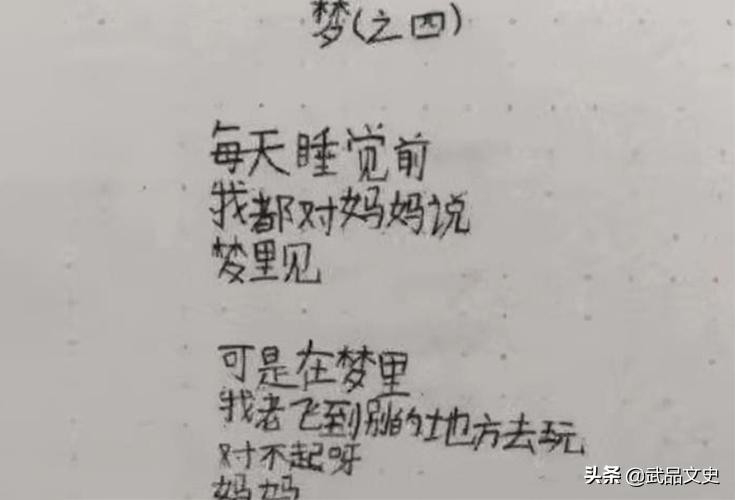 梦(之四)
每天睡觉前
我都对妈妈说
梦里见
可是在梦里
我老飞到别的地方去玩
对不起呀
妈妈
头条 @武品文史